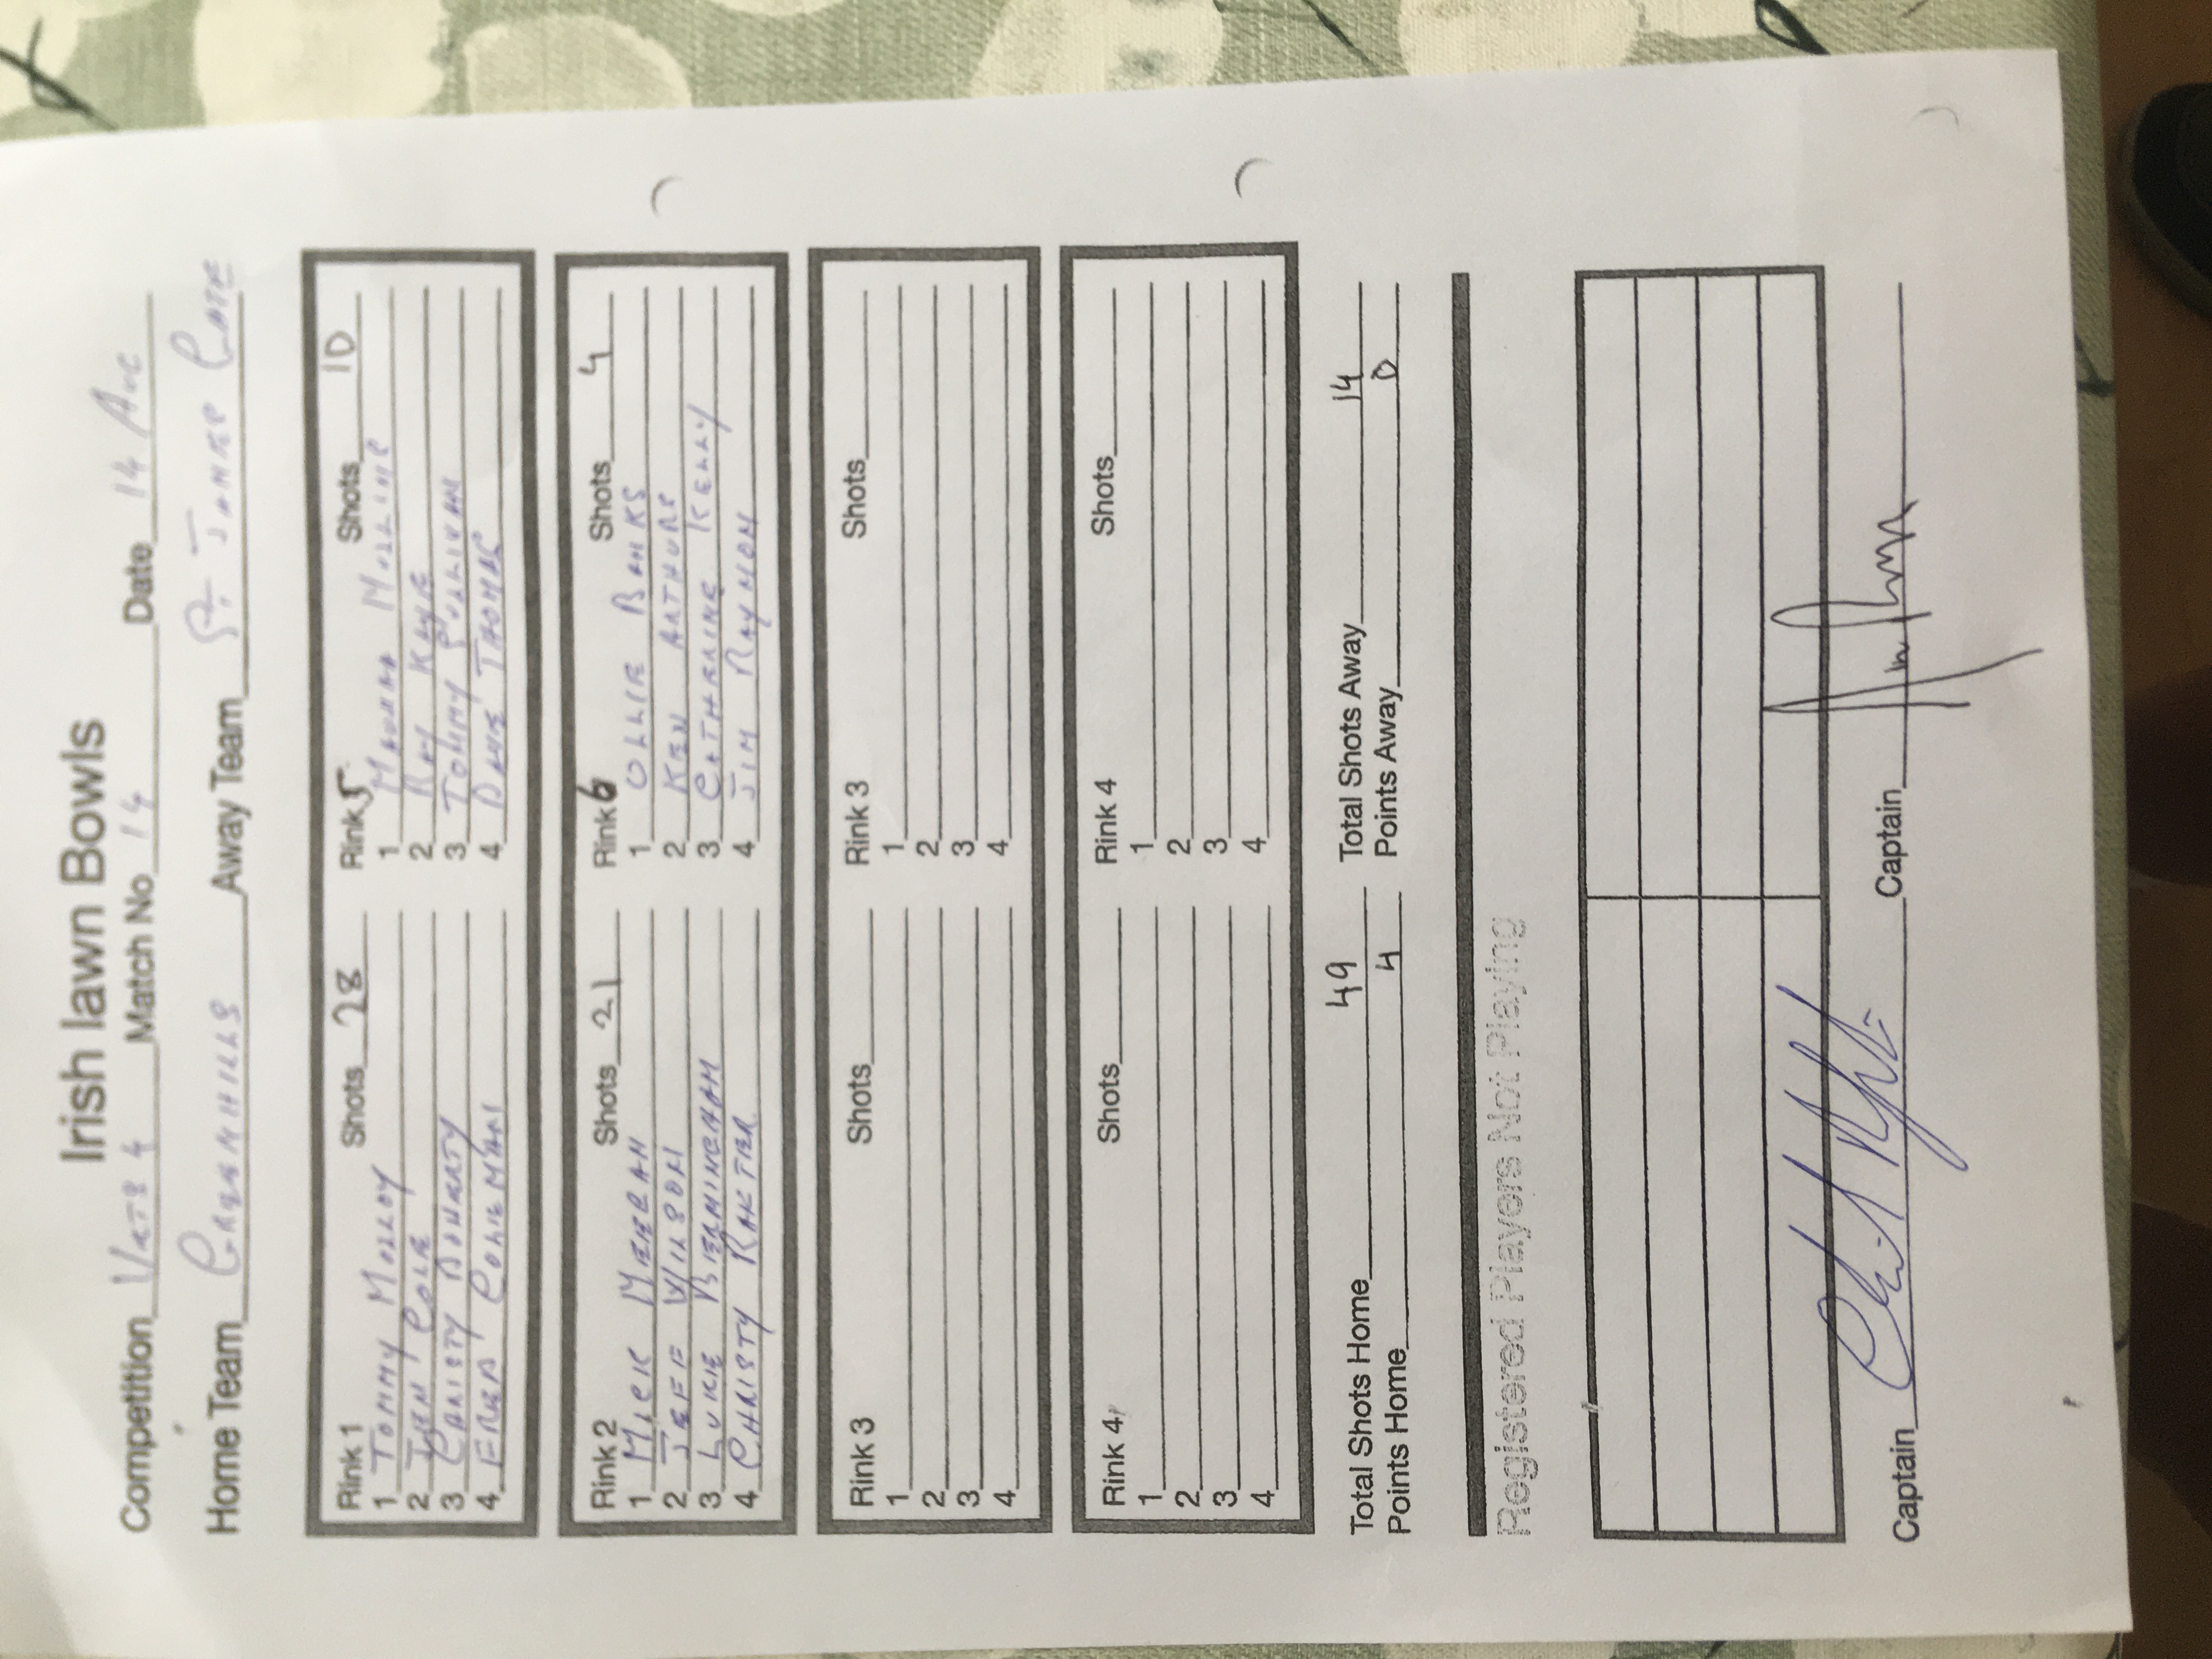 Irish lawn Bowls
Competition Vets 4 Match No 14 Date 14 Aug
Home Team Greenhills Away Team St. James Gate
Rink 1 Shots 28 Rink 5 Shots 10
1 Tommy Molloy 1 Mullins
2 John Cole 2 Ray Kane
3 Christy Doherty 3 Tommy Sullivan
4 Fred Coleman 4 Dave Thomas
Rink 2 Shots 21 Rink 6 Shots 4
1 Mick Meegan 1 Ollie Banks
2 Jeff Wilson 2 Ken Arthurs
3 Luke Bermingham 3 Catherine Kelly
4 Christy 4 Jim Raymon
Rink 3 Shots Rink 3 Shots
1 1
2 2
3 3
4 4
Rink 4 Shots Rink 4 Shots
1 1
2 2
3 3
4 4
Total Shots Home 49 Total Shots Away 14
Points Home 4 Points Away 0
Registered Players Not Playing
Captain Captain